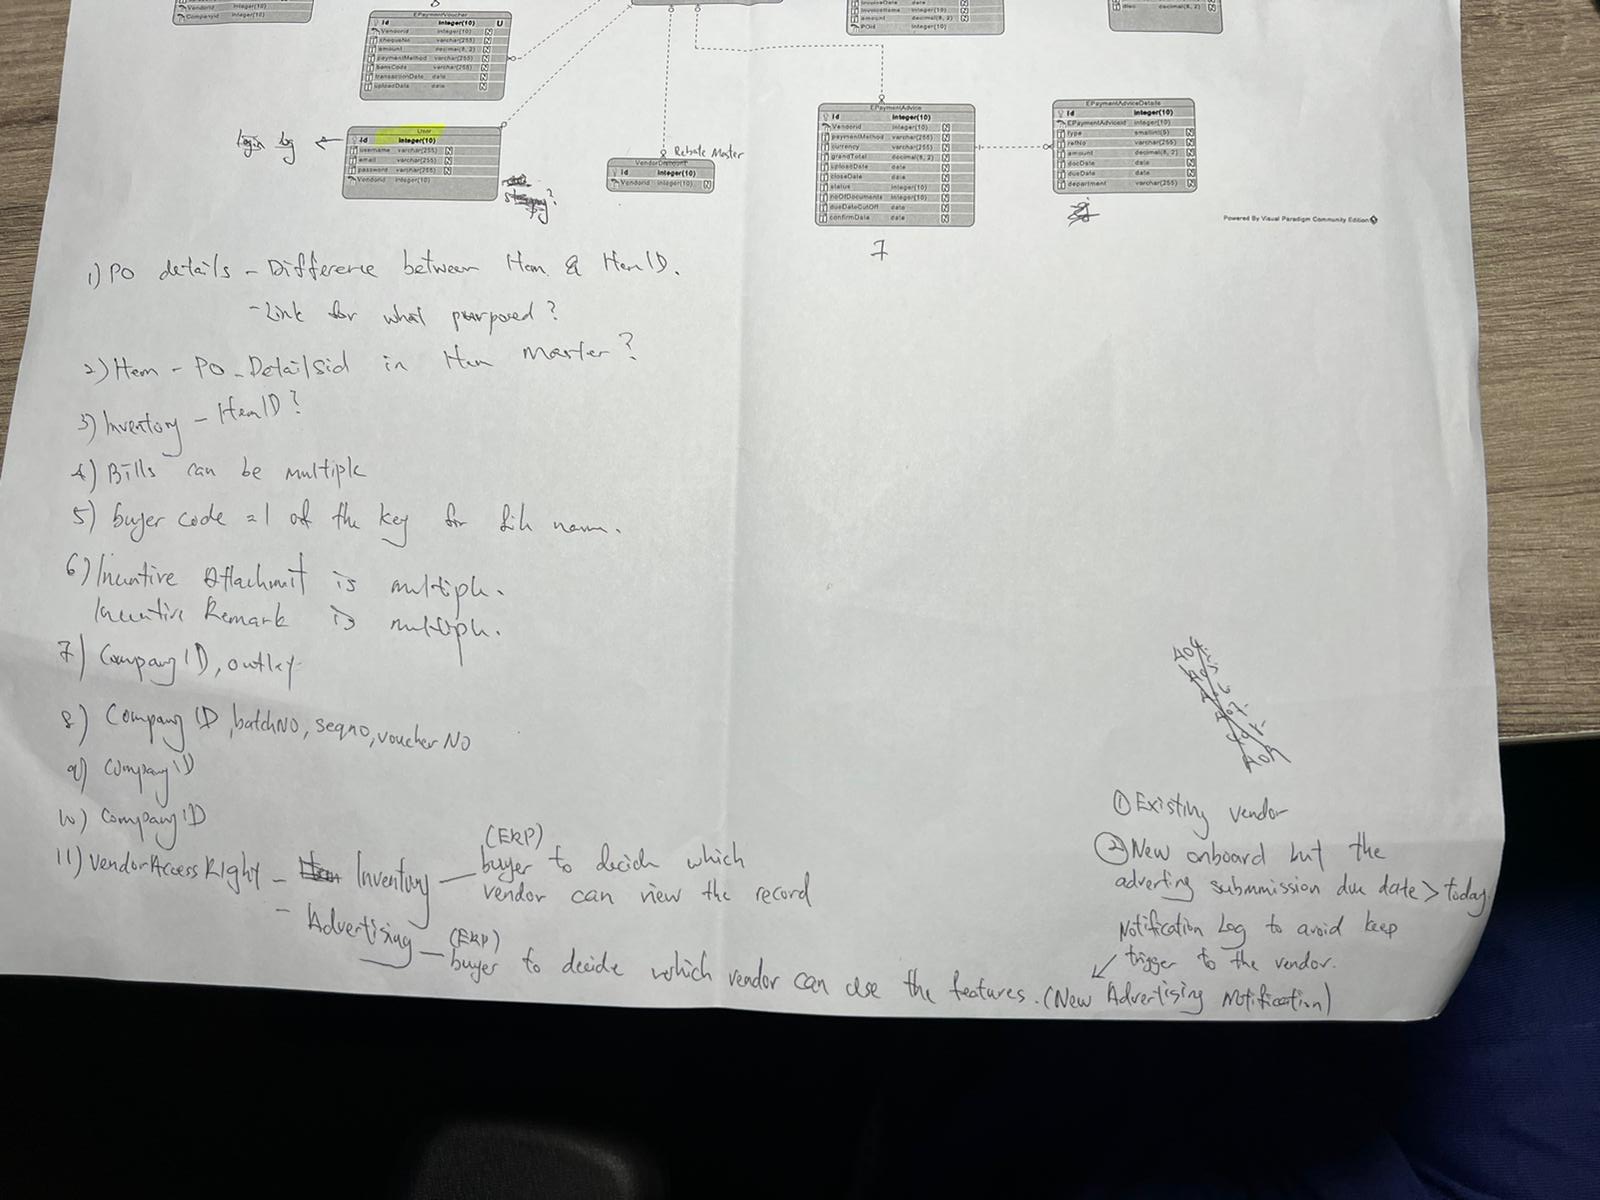 Vendorid integer(10)
Companyid integer(10)
8
EPaymentVoucher
id integer(10) U
Vendorid integer(10) N
chequeNo varchar(255) N
amount decimal(8, 2) N
paymentMethod varchar(255) N
bankCode varchar(255) N
transactionDate date N
uploadDate date N
invoiceDate date
invoiceName integer(10)
amount decimal(8, 2) N
POid integer(10)
decimal(8, 2) N
login log
User
id integer(10)
username varchar(255) N
email varchar(255) N
password varchar(255) N
Vendorid integer(10)
Rebate Master
id integer(10)
Vendorid integer(10) N
EPaymentAdvice
id integer(10)
Vendorid integer(10) N
paymentMethod varchar(255) N
currency varchar(255) N
grandTotal decimal(8, 2) N
uploadDate date N
closeDate date N
status integer(10) N
noOfDocuments integer(10) N
dueDateCutOff date N
confirmDate date N
7
EPaymentAdviceDetails
id integer(10)
EPaymentAdviceid integer(10)
type smallint(5) N
refNo varchar(255) N
amount decimal(8, 2) N
docDate date N
dueDate date N
department varchar(255) N
Powered By Visual Paradigm Community Edition
1) PO details - Difference between Item & ItemID.
- Link for what purposed?
2) Item - PO_Detailsid in Item Master?
3) Inventory - ItemID?
4) Bills can be multiple
5) buyer code = 1 of the key for file name.
6) Incentive Attachment is multiple.
Incentive Remark is multiple.
7) Company ID, outlet
8) Company ID, batchNO, seqno, voucher NO
9) Company ID
10) Company ID
11) VendorAccessRight - Inventory - (ERP) buyer to decide which
vendor can view the record
- Advertising - (ERP) buyer to decide which vendor can use the features. (New Advertising Notification)
① Existing vendor
② New onboard but the
adverting submmission due date > today.
Notification Log to avoid keep
trigger to the vendor.